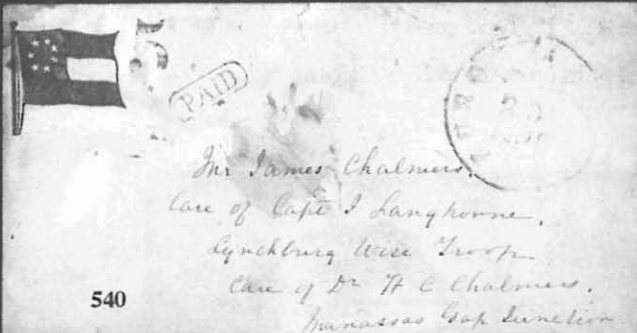 5
PAID
Mr James Chalmers.
Care of Capt J Langhorne.
Lynchburg Wise Troop
Care of Dr H C Chalmers.
Manassas Gap Junction
540